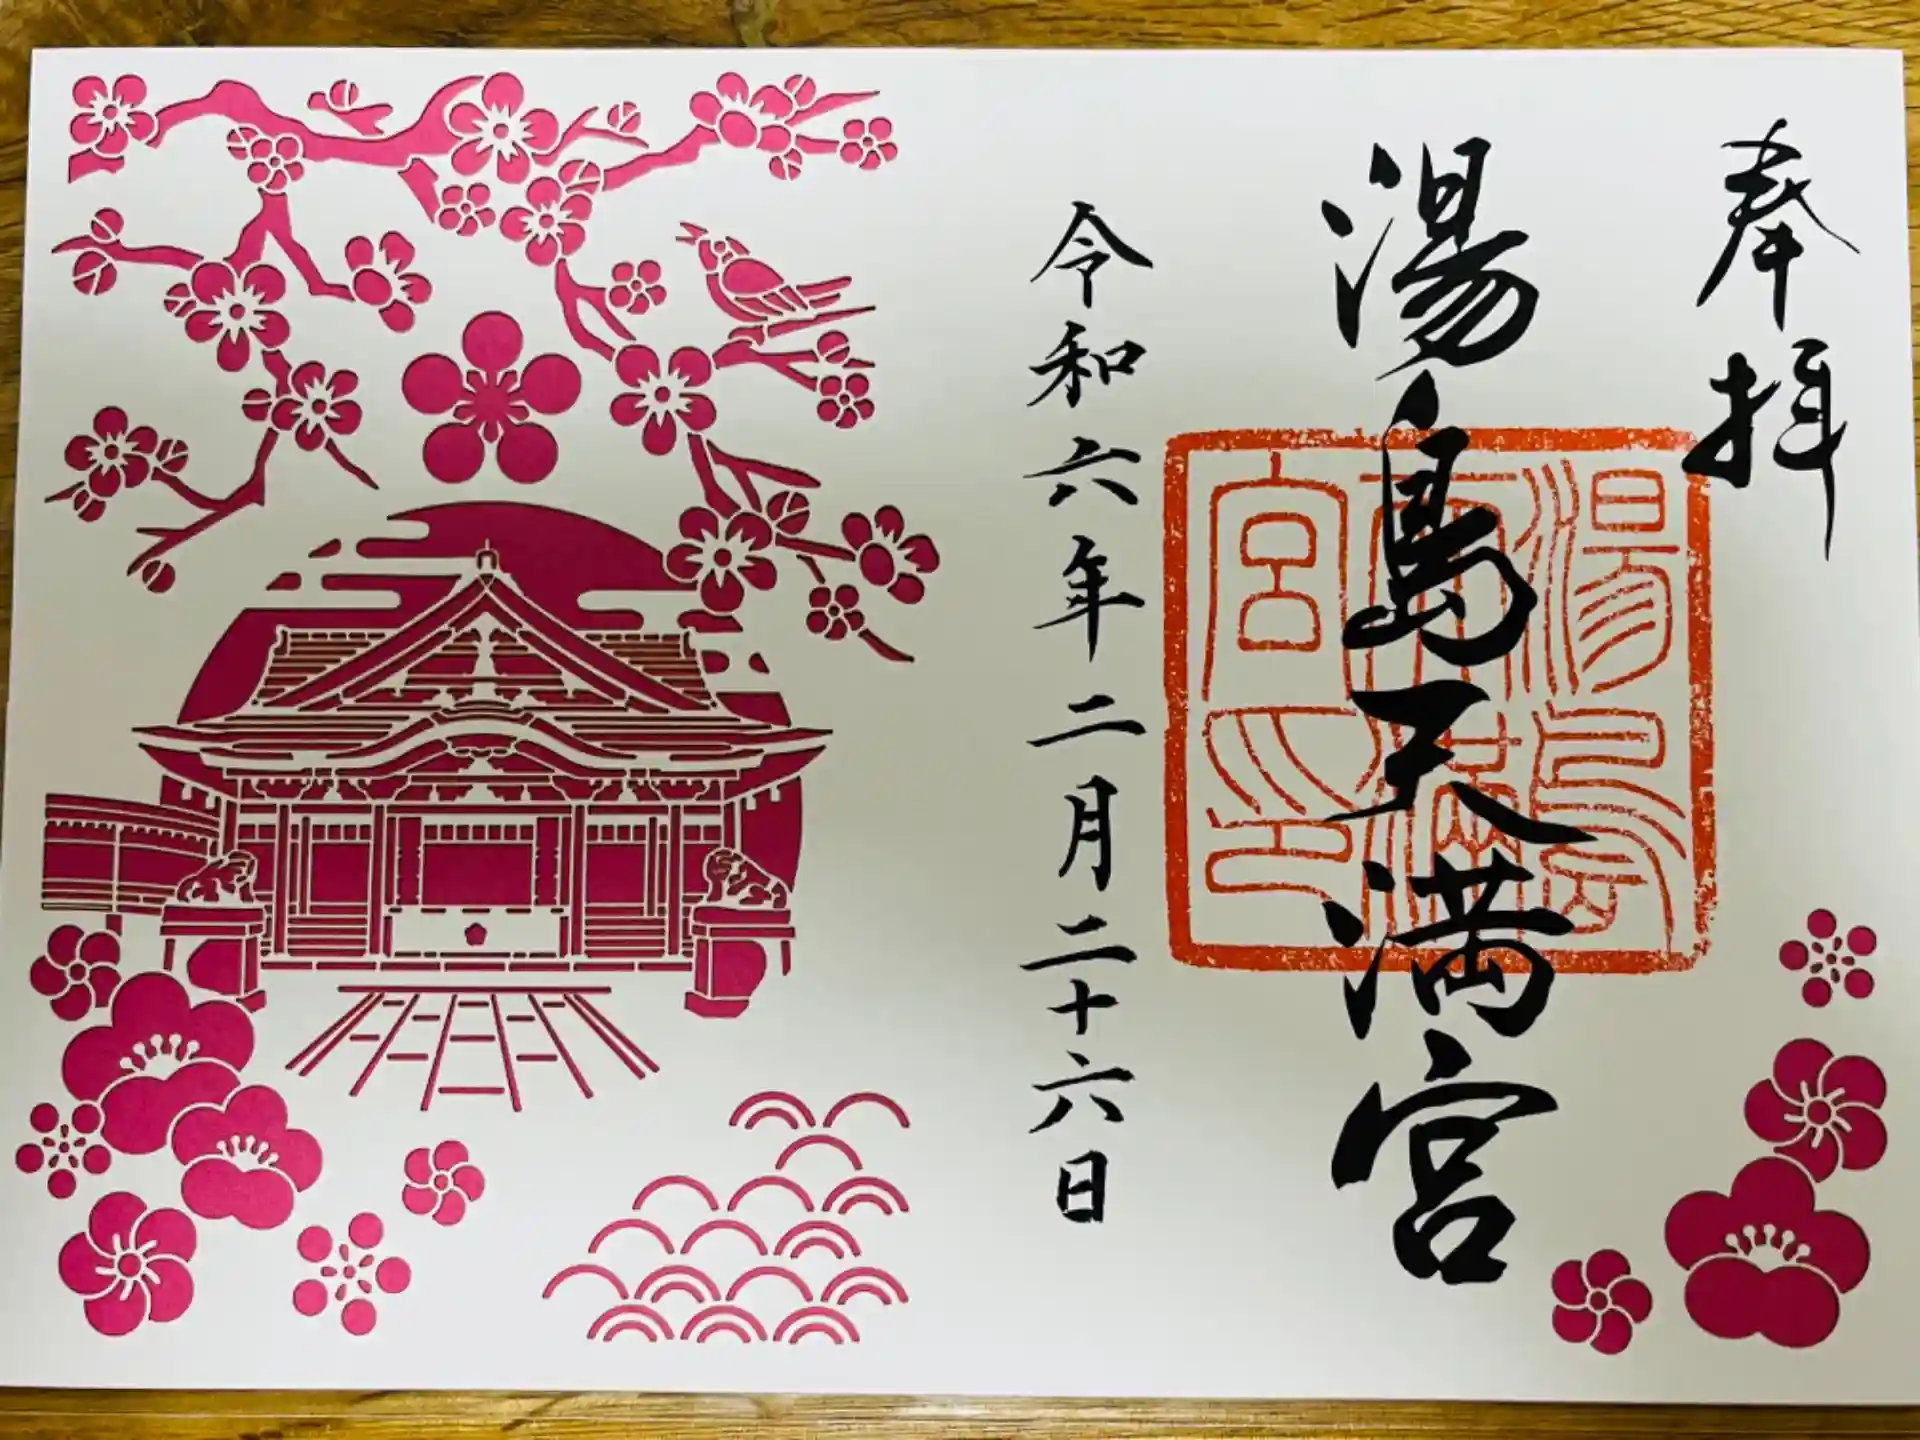 奉拝
湯島天満宮
湯島天満宮印
令和六年二月二十六日